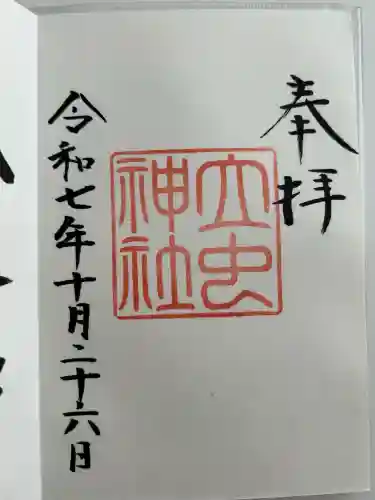 奉拝
大虫
神社
令和七年十月二十六日